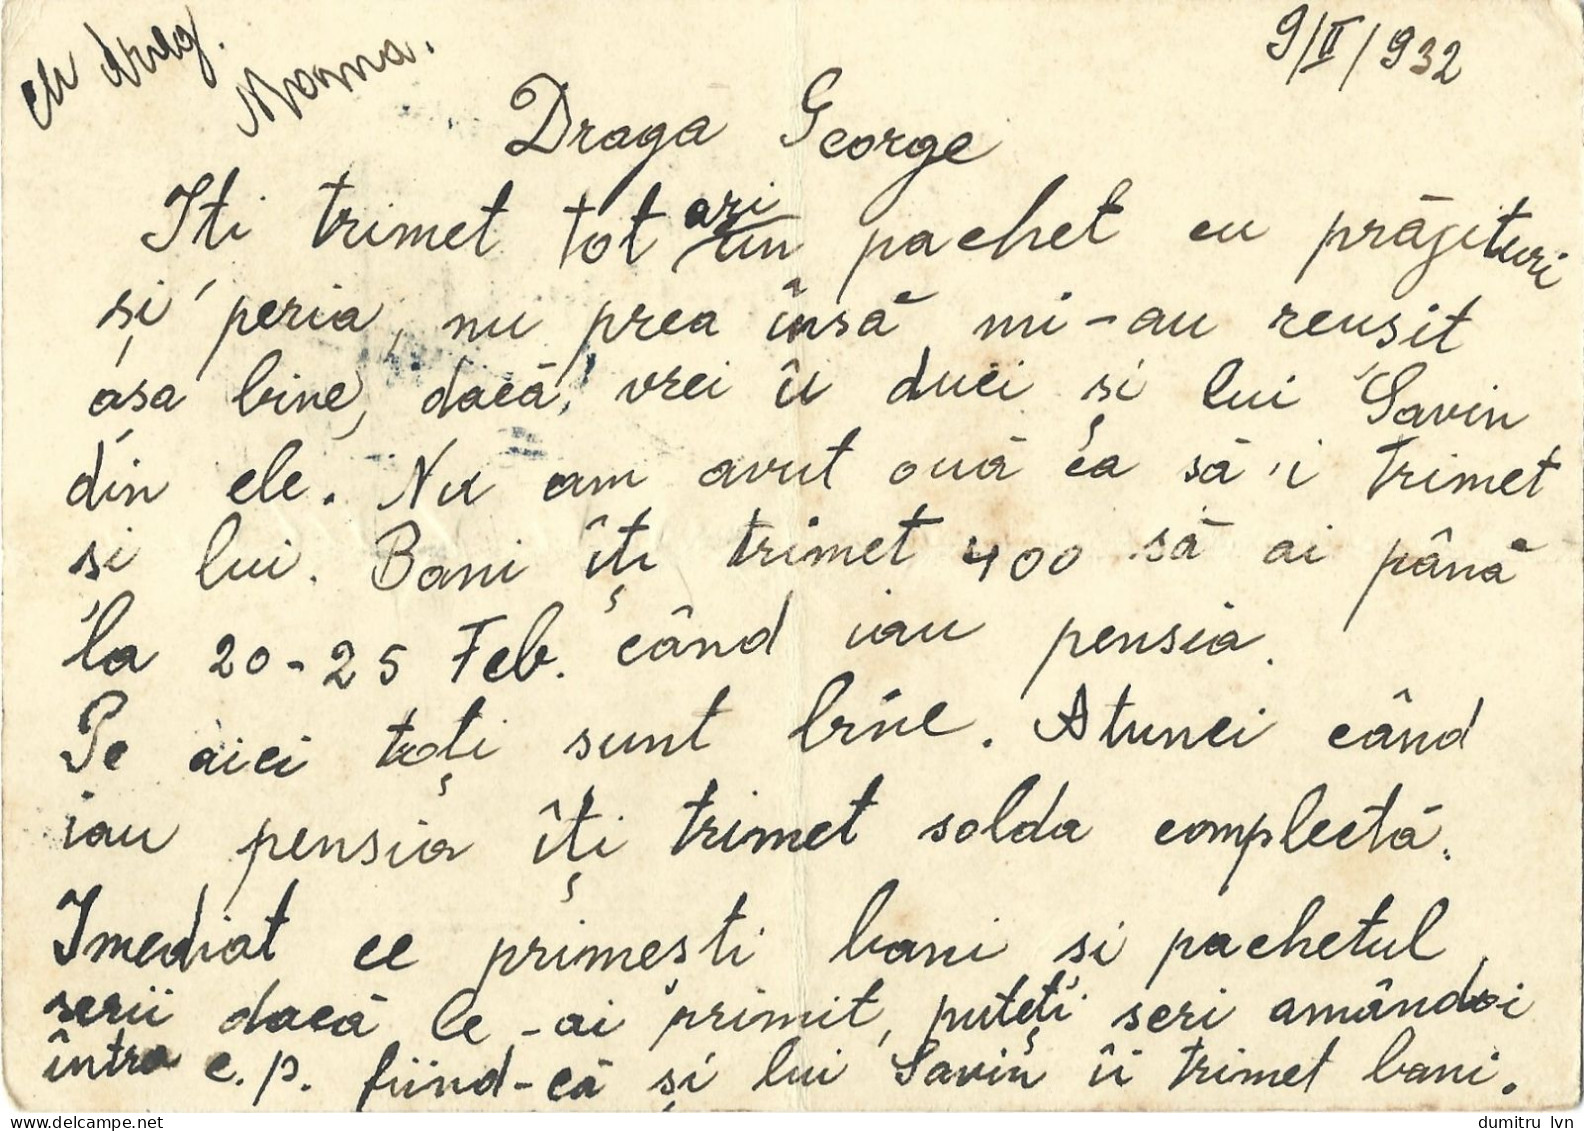 9/II/932
Draga George
Iti trimet tot azi un pachet cu prăjituri
și peria, nu prea însă mi-au reusit
așa bine, dacă, vrei îi duci și lui Savin
din ele. Nu am avut ouă ca să-i trimet
si lui. Bani îți trimet 400 să ai până
la 20-25 Feb. când iau pensia.
Pe aici toți sunt bine. Atunci când
iau pensia îți trimet solda complectă.
Imediat ce primești bani si pachetul
scrii dacă le-ai primit, puteți scri amândoi
întro c.p. fiind-că și lui Savin îi trimet bani.
cu drag.
Mama.
dumitru_lvn